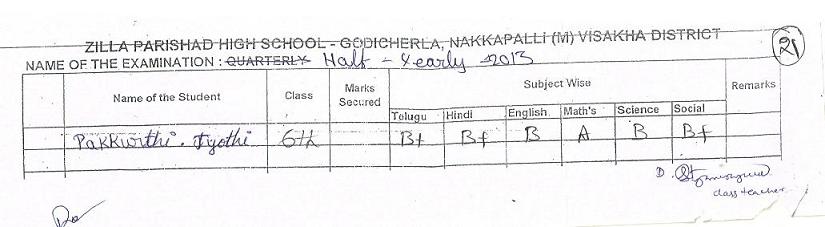 ZILLA PARISHAD HIGH SCHOOL - GODICHERLA, NAKKAPALLI (M) VISAKHA DISTRICT
21
NAME OF THE EXAMINATION : QUARTERLY Half - Yearly - 2013
Name of the Student Class Marks Secured Subject Wise Remarks
Telugu Hindi English Math's Science Social
Pakkurthi . Jyothi 6th B+ B+ B A B B+
D.
class teacher